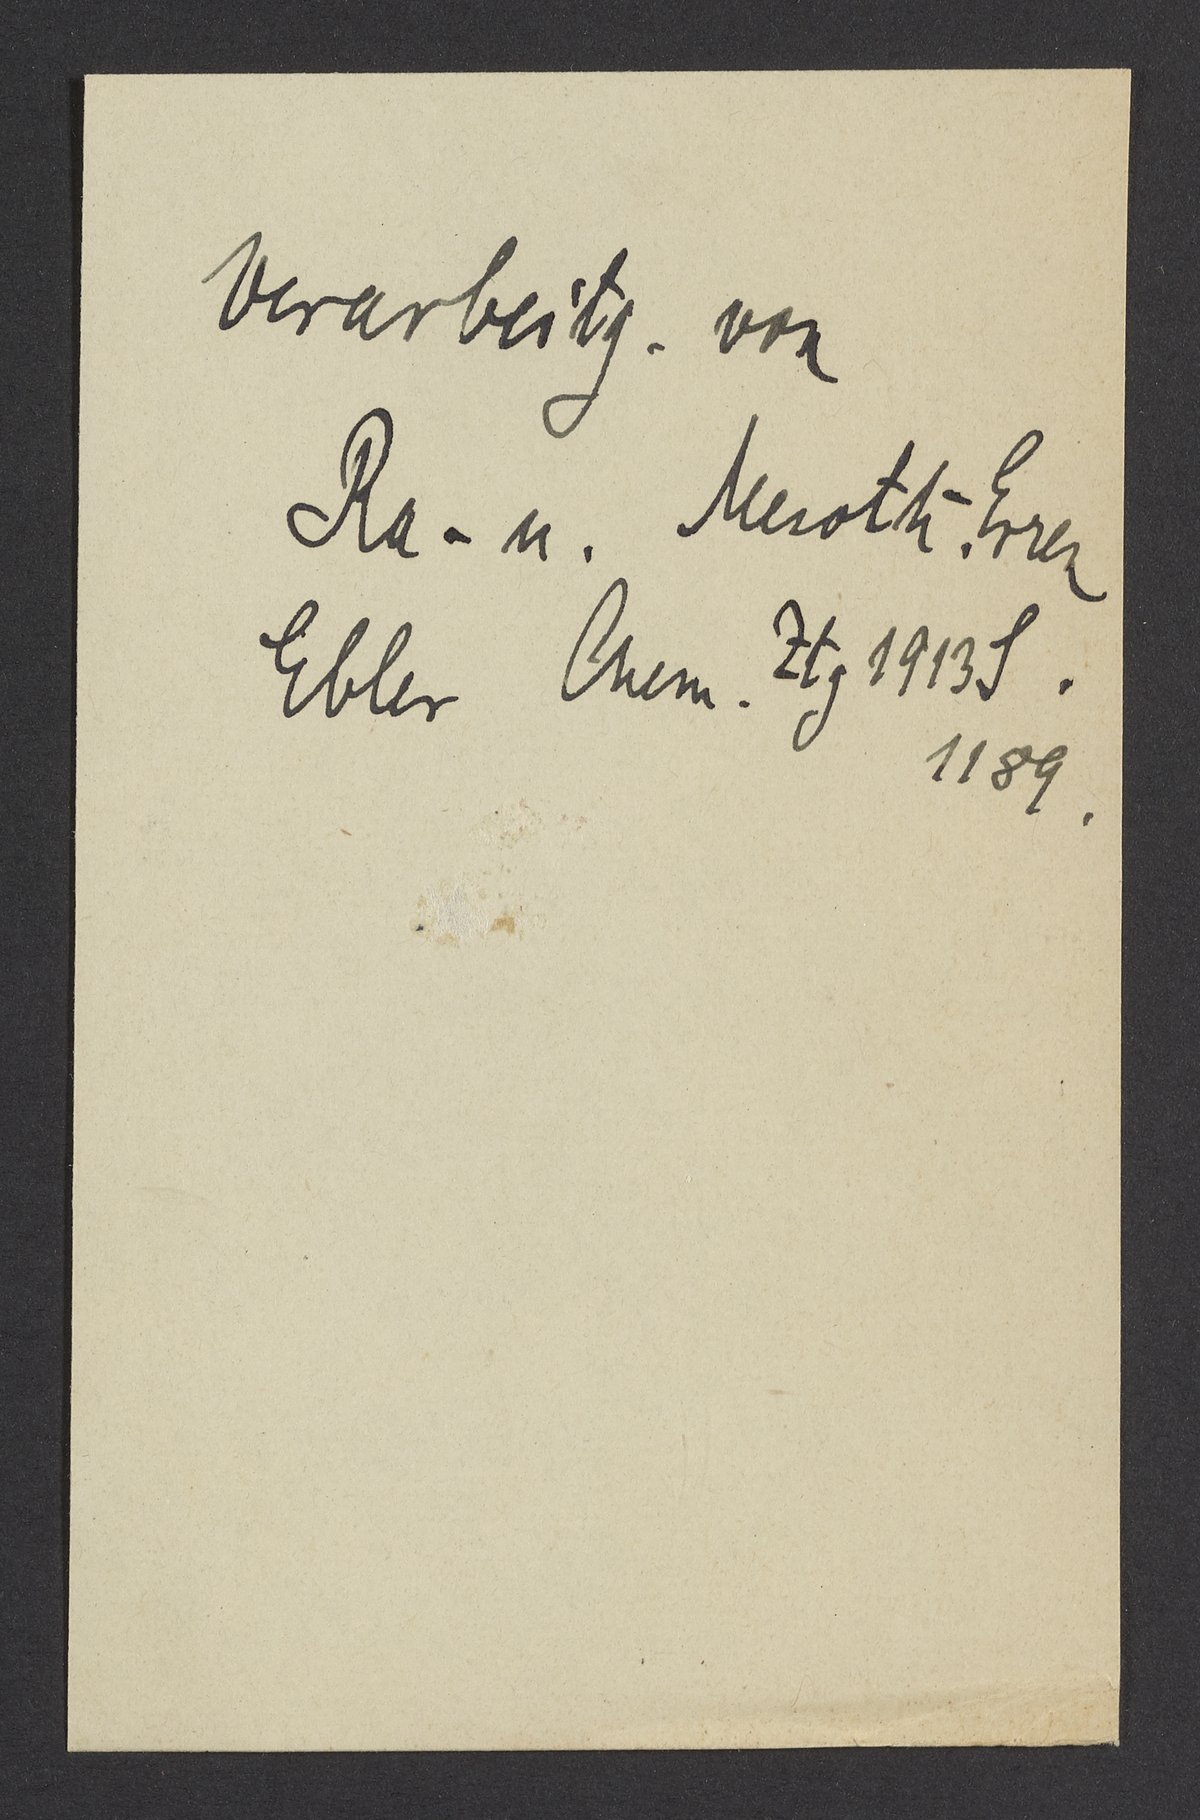 Verarbeitg. von
Ra- u. Mesoth-Erzen
Ebler Chem. Ztg 1913 S.
1189.